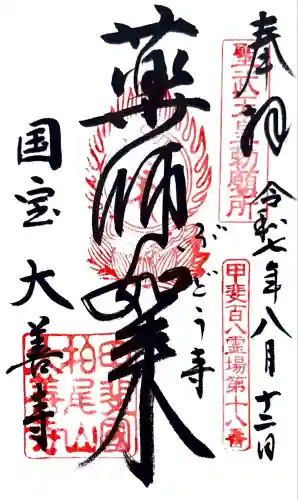 奉拝
令和七年八月十二日
聖武天皇勅願所
甲斐百八霊場第十八番
薬師如来
ぶどう寺
国宝
大善寺
甲斐国
柏尾山
大善寺